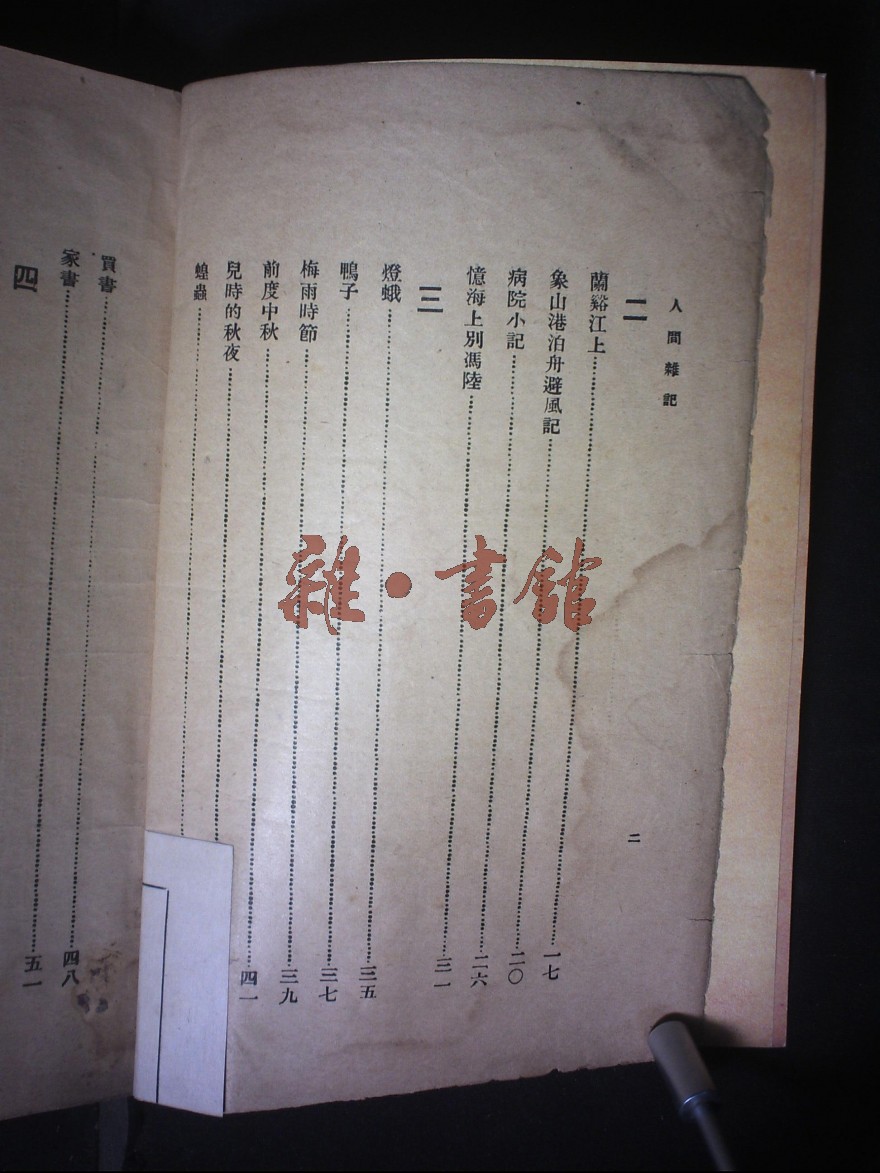 人間雜記
二
二
蘭谿江上⋯⋯一七
象山港泊舟避風記⋯⋯二〇
病院小記⋯⋯二六
憶海上別馮陸⋯⋯三一
三
燈蛾⋯⋯三五
鴨子⋯⋯三七
梅雨時節⋯⋯三九
前度中秋⋯⋯四一
兒時的秋夜⋯⋯
蝗蟲⋯⋯
買書⋯⋯四八
家書⋯⋯五一
四
雜·書館